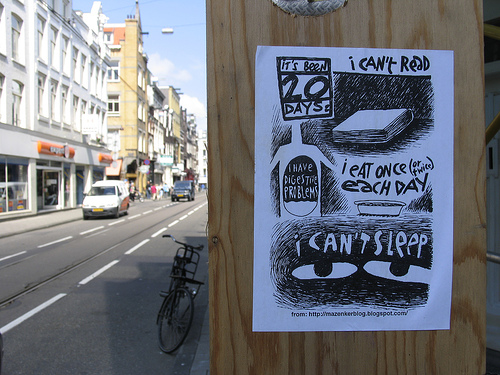 IT'S BEEN
20
DAYS:
i CAN'T READ
I HAVE
DIGESTIVE
PROBLEMS
i EAT ONCE (or twice)
EACH DAY
i CAN'T SLEEP
from: http://mazenkerblog.blogspot.com/